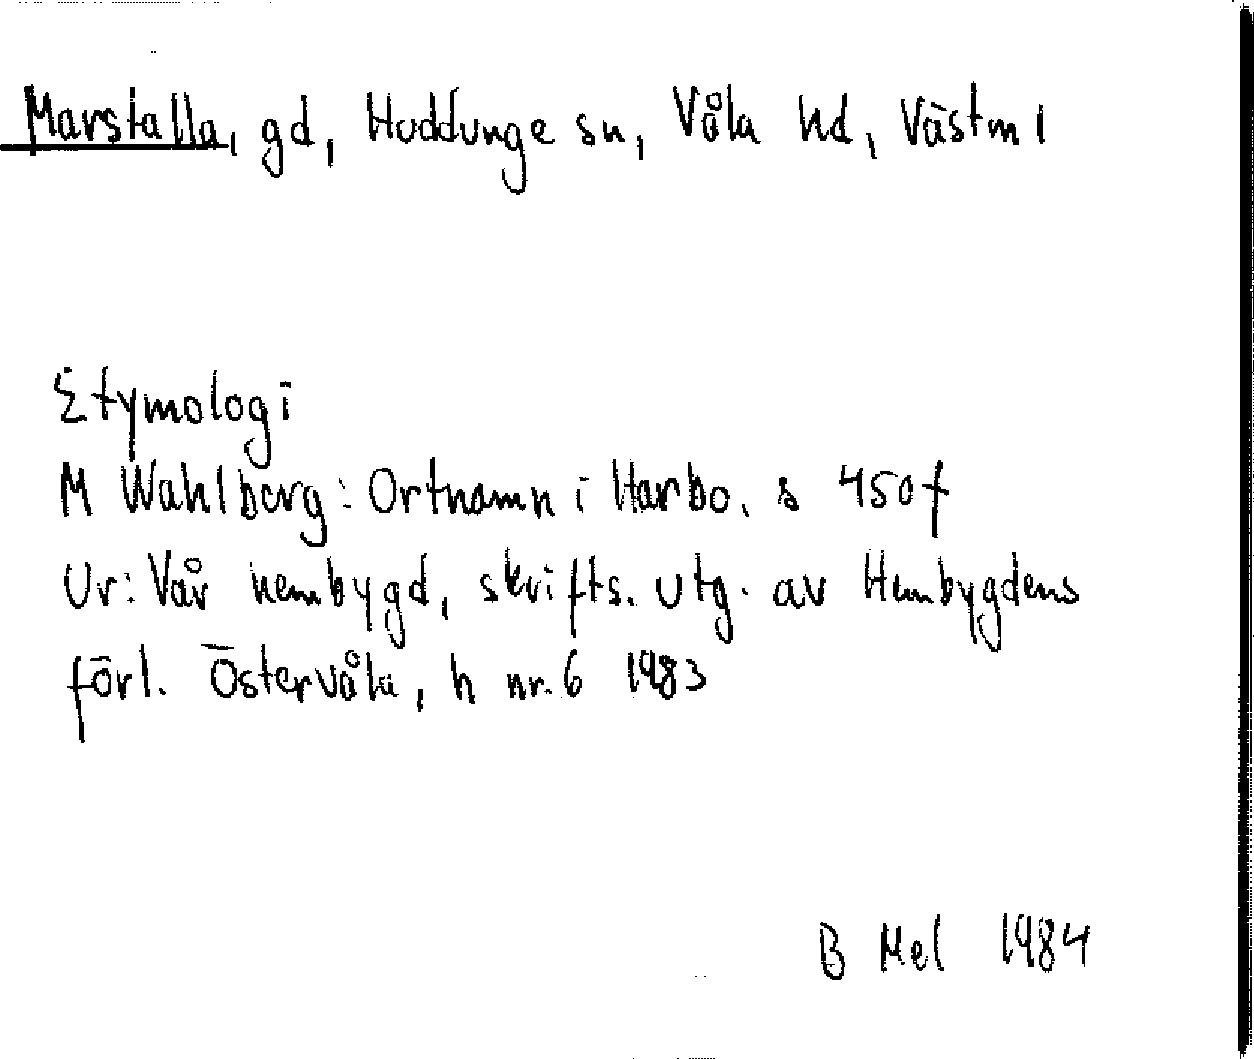 Marstalla, gd, Huddunge sn, Våla hd, Västm l
Etymologi
M Wahlberg: Ortnamn i Harbo. s 450f
Ur: Vår hembygd, skrifts. utg. av Hembygdens
förl. Östervåla, h nr. 6 1983
B Mel 1984